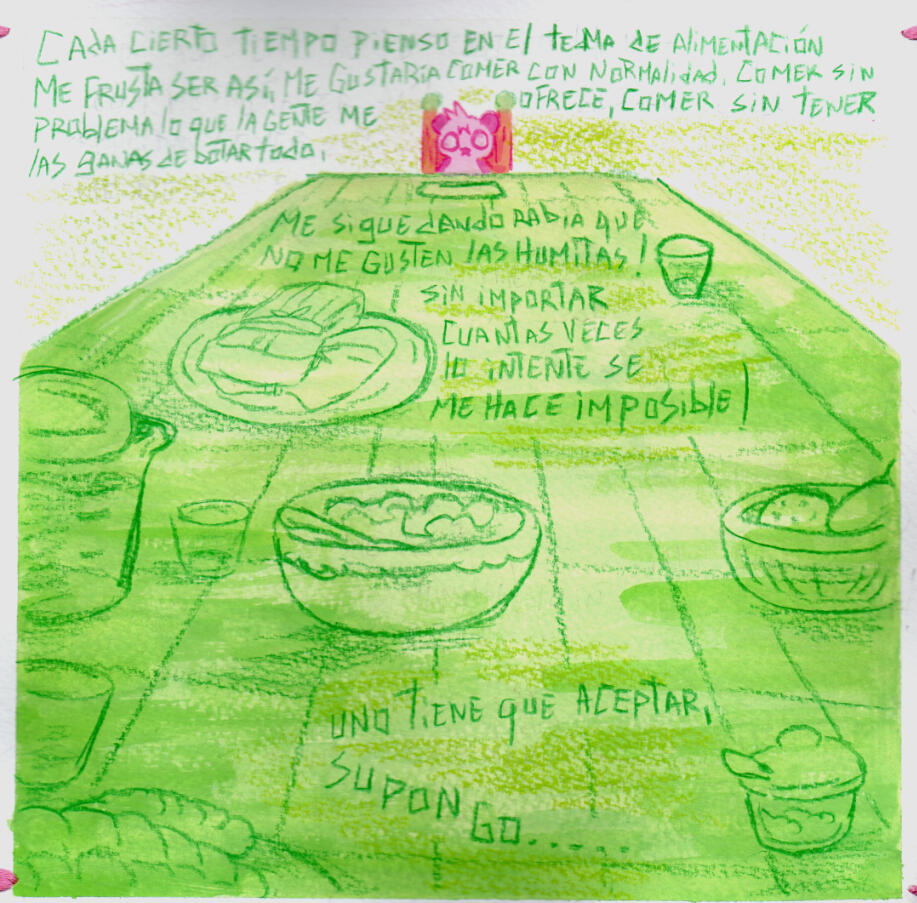 CADA CIERTO TIEMPO PIENSO EN El TEMA DE AlIMENTACIÓN
ME FRUSTA SER ASí, ME GUSTARíA COMER CON NORMALIDAD. COMER SIN
PROBLEMA lO QUE lA GENTE ME OFRECE, COMER SIN TENER
lAS GANAS DE BOTAR TODO.
ME SIGUE DANDO RABIA QUE
NO ME GUSTEN lAS HUMITAS!
SIN IMPORTAR
CUANTAS VECES
lO INTENTE SE
ME HACE IMPOSIBlE!
UNO TIENE QUE ACEPTAR,
SUPONGO......